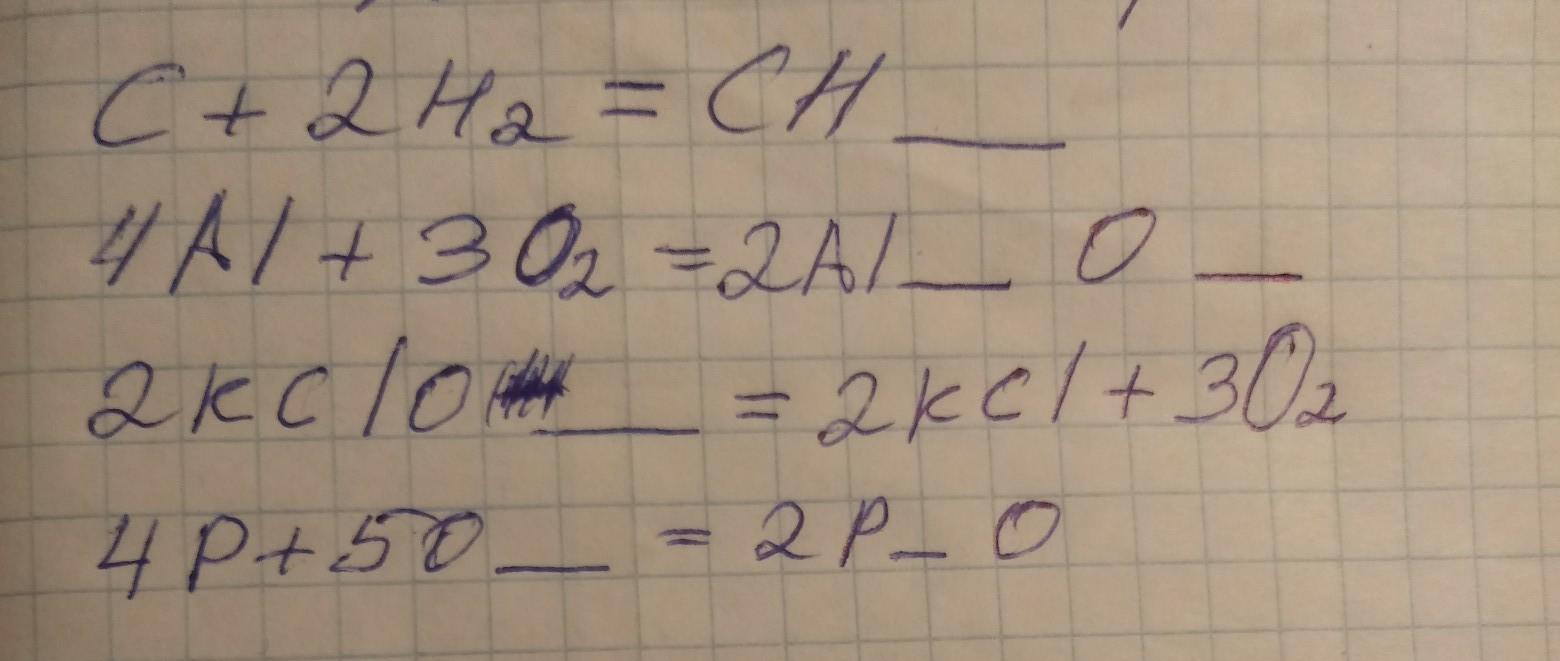 C + 2H₂ = CH __
4Al + 3O₂ = 2Al __ O __
2KClO __ = 2KCl + 3O₂
4P + 5O __ = 2P _ O